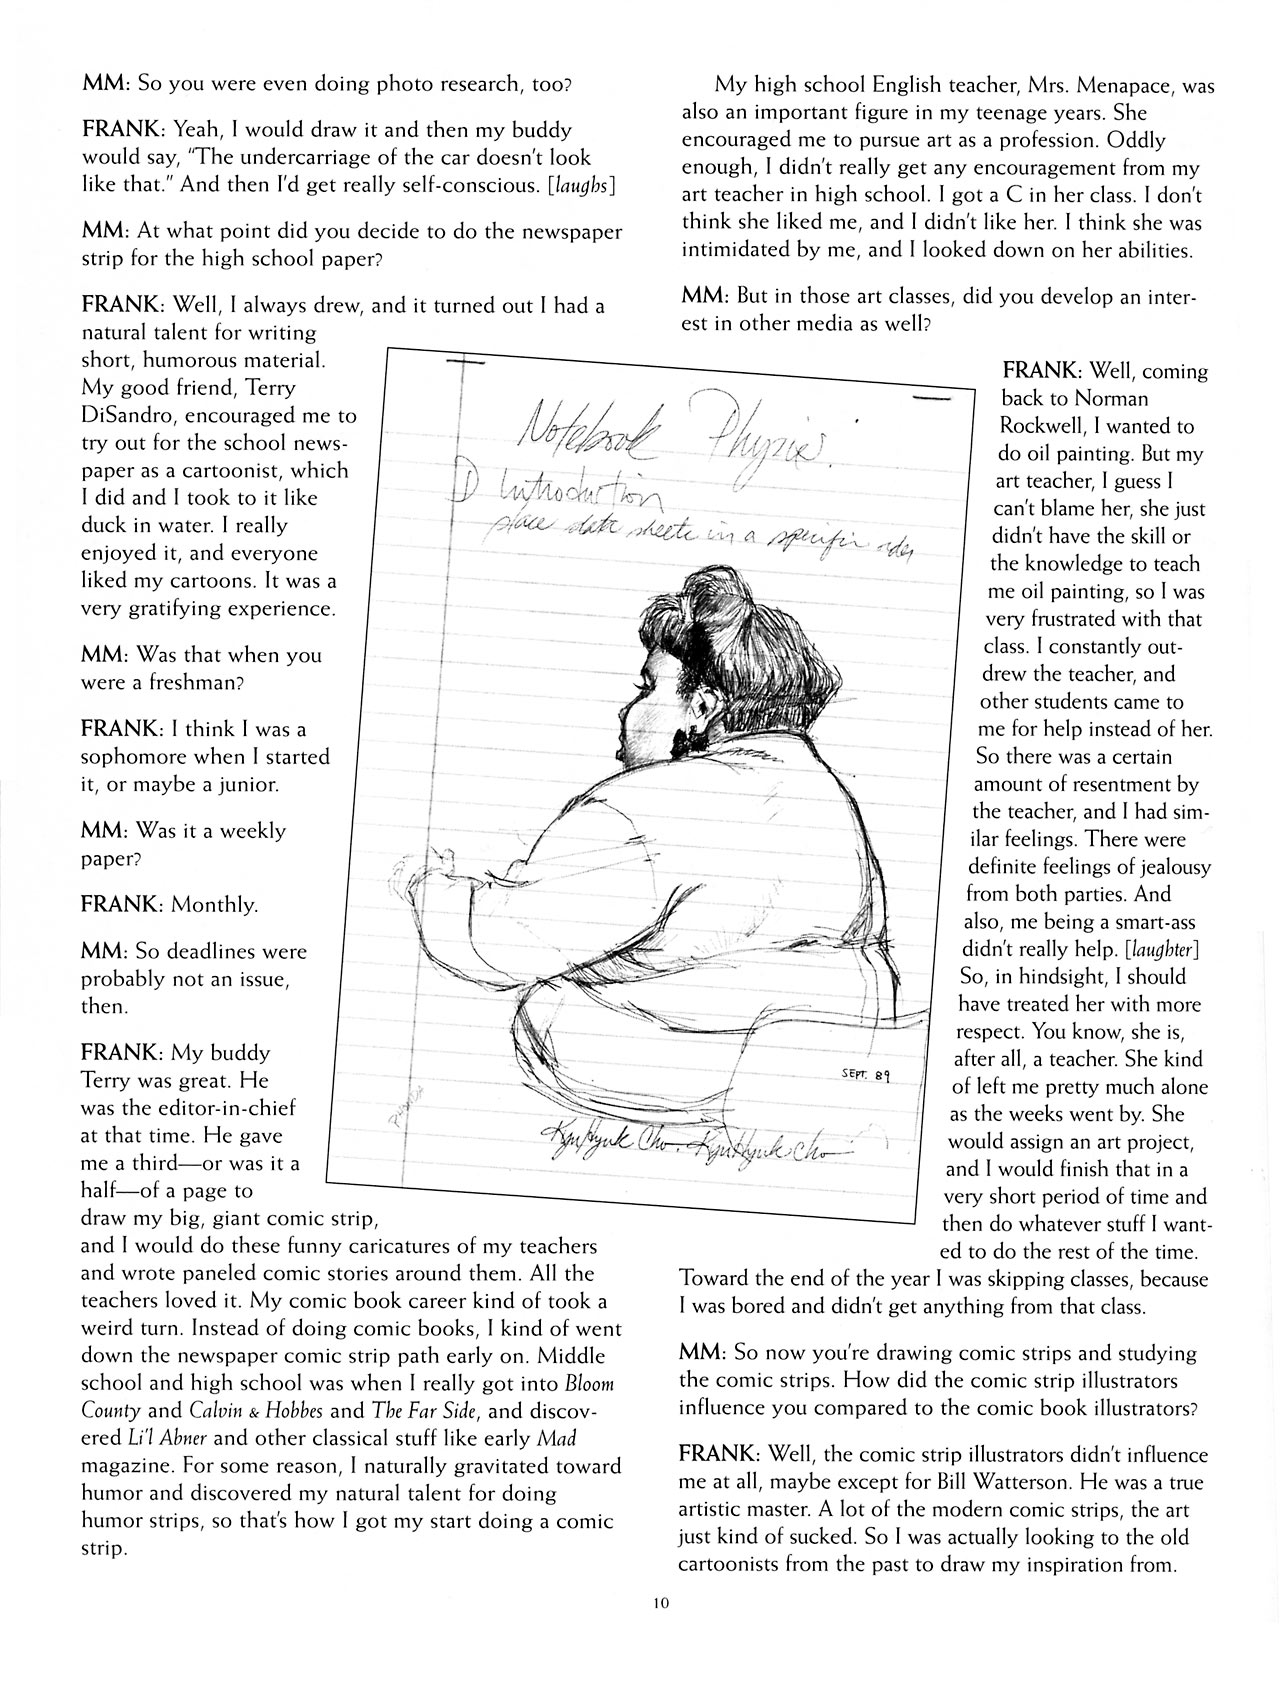 MM: So you were even doing photo research, too?
FRANK: Yeah, I would draw it and then my buddy
would say, "The undercarriage of the car doesn't look
like that." And then I'd get really self-conscious. [laughs]
MM: At what point did you decide to do the newspaper
strip for the high school paper?
FRANK: Well, I always drew, and it turned out I had a
natural talent for writing
short, humorous material.
My good friend, Terry
DiSandro, encouraged me to
try out for the school news-
paper as a cartoonist, which
I did and I took to it like
duck in water. I really
enjoyed it, and everyone
liked my cartoons. It was a
very gratifying experience.
MM: Was that when you
were a freshman?
FRANK: I think I was a
sophomore when I started
it, or maybe a junior.
MM: Was it a weekly
paper?
FRANK: Monthly.
MM: So deadlines were
probably not an issue,
then.
FRANK: My buddy
Terry was great. He
was the editor-in-chief
at that time. He gave
me a third—or was it a
half—of a page to
draw my big, giant comic strip,
and I would do these funny caricatures of my teachers
and wrote paneled comic stories around them. All the
teachers loved it. My comic book career kind of took a
weird turn. Instead of doing comic books, I kind of went
down the newspaper comic strip path early on. Middle
school and high school was when I really got into Bloom
County and Calvin & Hobbes and The Far Side, and discov-
ered Li'l Abner and other classical stuff like early Mad
magazine. For some reason, I naturally gravitated toward
humor and discovered my natural talent for doing
humor strips, so that's how I got my start doing a comic
strip.
Notebook Physics.
I) Introduction
place data sheets in a specific order
SEPT. 89
KyuHyuk Cho. KyuHyuk Cho
My high school English teacher, Mrs. Menapace, was
also an important figure in my teenage years. She
encouraged me to pursue art as a profession. Oddly
enough, I didn't really get any encouragement from my
art teacher in high school. I got a C in her class. I don't
think she liked me, and I didn't like her. I think she was
intimidated by me, and I looked down on her abilities.
MM: But in those art classes, did you develop an inter-
est in other media as well?
FRANK: Well, coming
back to Norman
Rockwell, I wanted to
do oil painting. But my
art teacher, I guess I
can't blame her, she just
didn't have the skill or
the knowledge to teach
me oil painting, so I was
very frustrated with that
class. I constantly out-
drew the teacher, and
other students came to
me for help instead of her.
So there was a certain
amount of resentment by
the teacher, and I had sim-
ilar feelings. There were
definite feelings of jealousy
from both parties. And
also, me being a smart-ass
didn't really help. [laughter]
So, in hindsight, I should
have treated her with more
respect. You know, she is,
after all, a teacher. She kind
of left me pretty much alone
as the weeks went by. She
would assign an art project,
and I would finish that in a
very short period of time and
then do whatever stuff I want-
ed to do the rest of the time.
Toward the end of the year I was skipping classes, because
I was bored and didn't get anything from that class.
MM: So now you're drawing comic strips and studying
the comic strips. How did the comic strip illustrators
influence you compared to the comic book illustrators?
FRANK: Well, the comic strip illustrators didn't influence
me at all, maybe except for Bill Watterson. He was a true
artistic master. A lot of the modern comic strips, the art
just kind of sucked. So I was actually looking to the old
cartoonists from the past to draw my inspiration from.
10